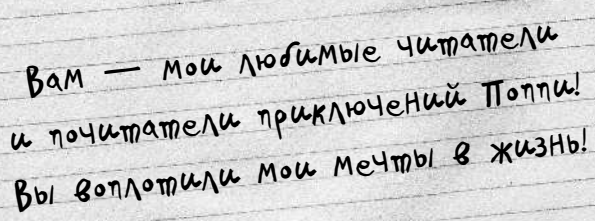 Вам — мои любимые читатели
и почитатели приключений Поппи!
Вы воплотили мои мечты в жизнь!